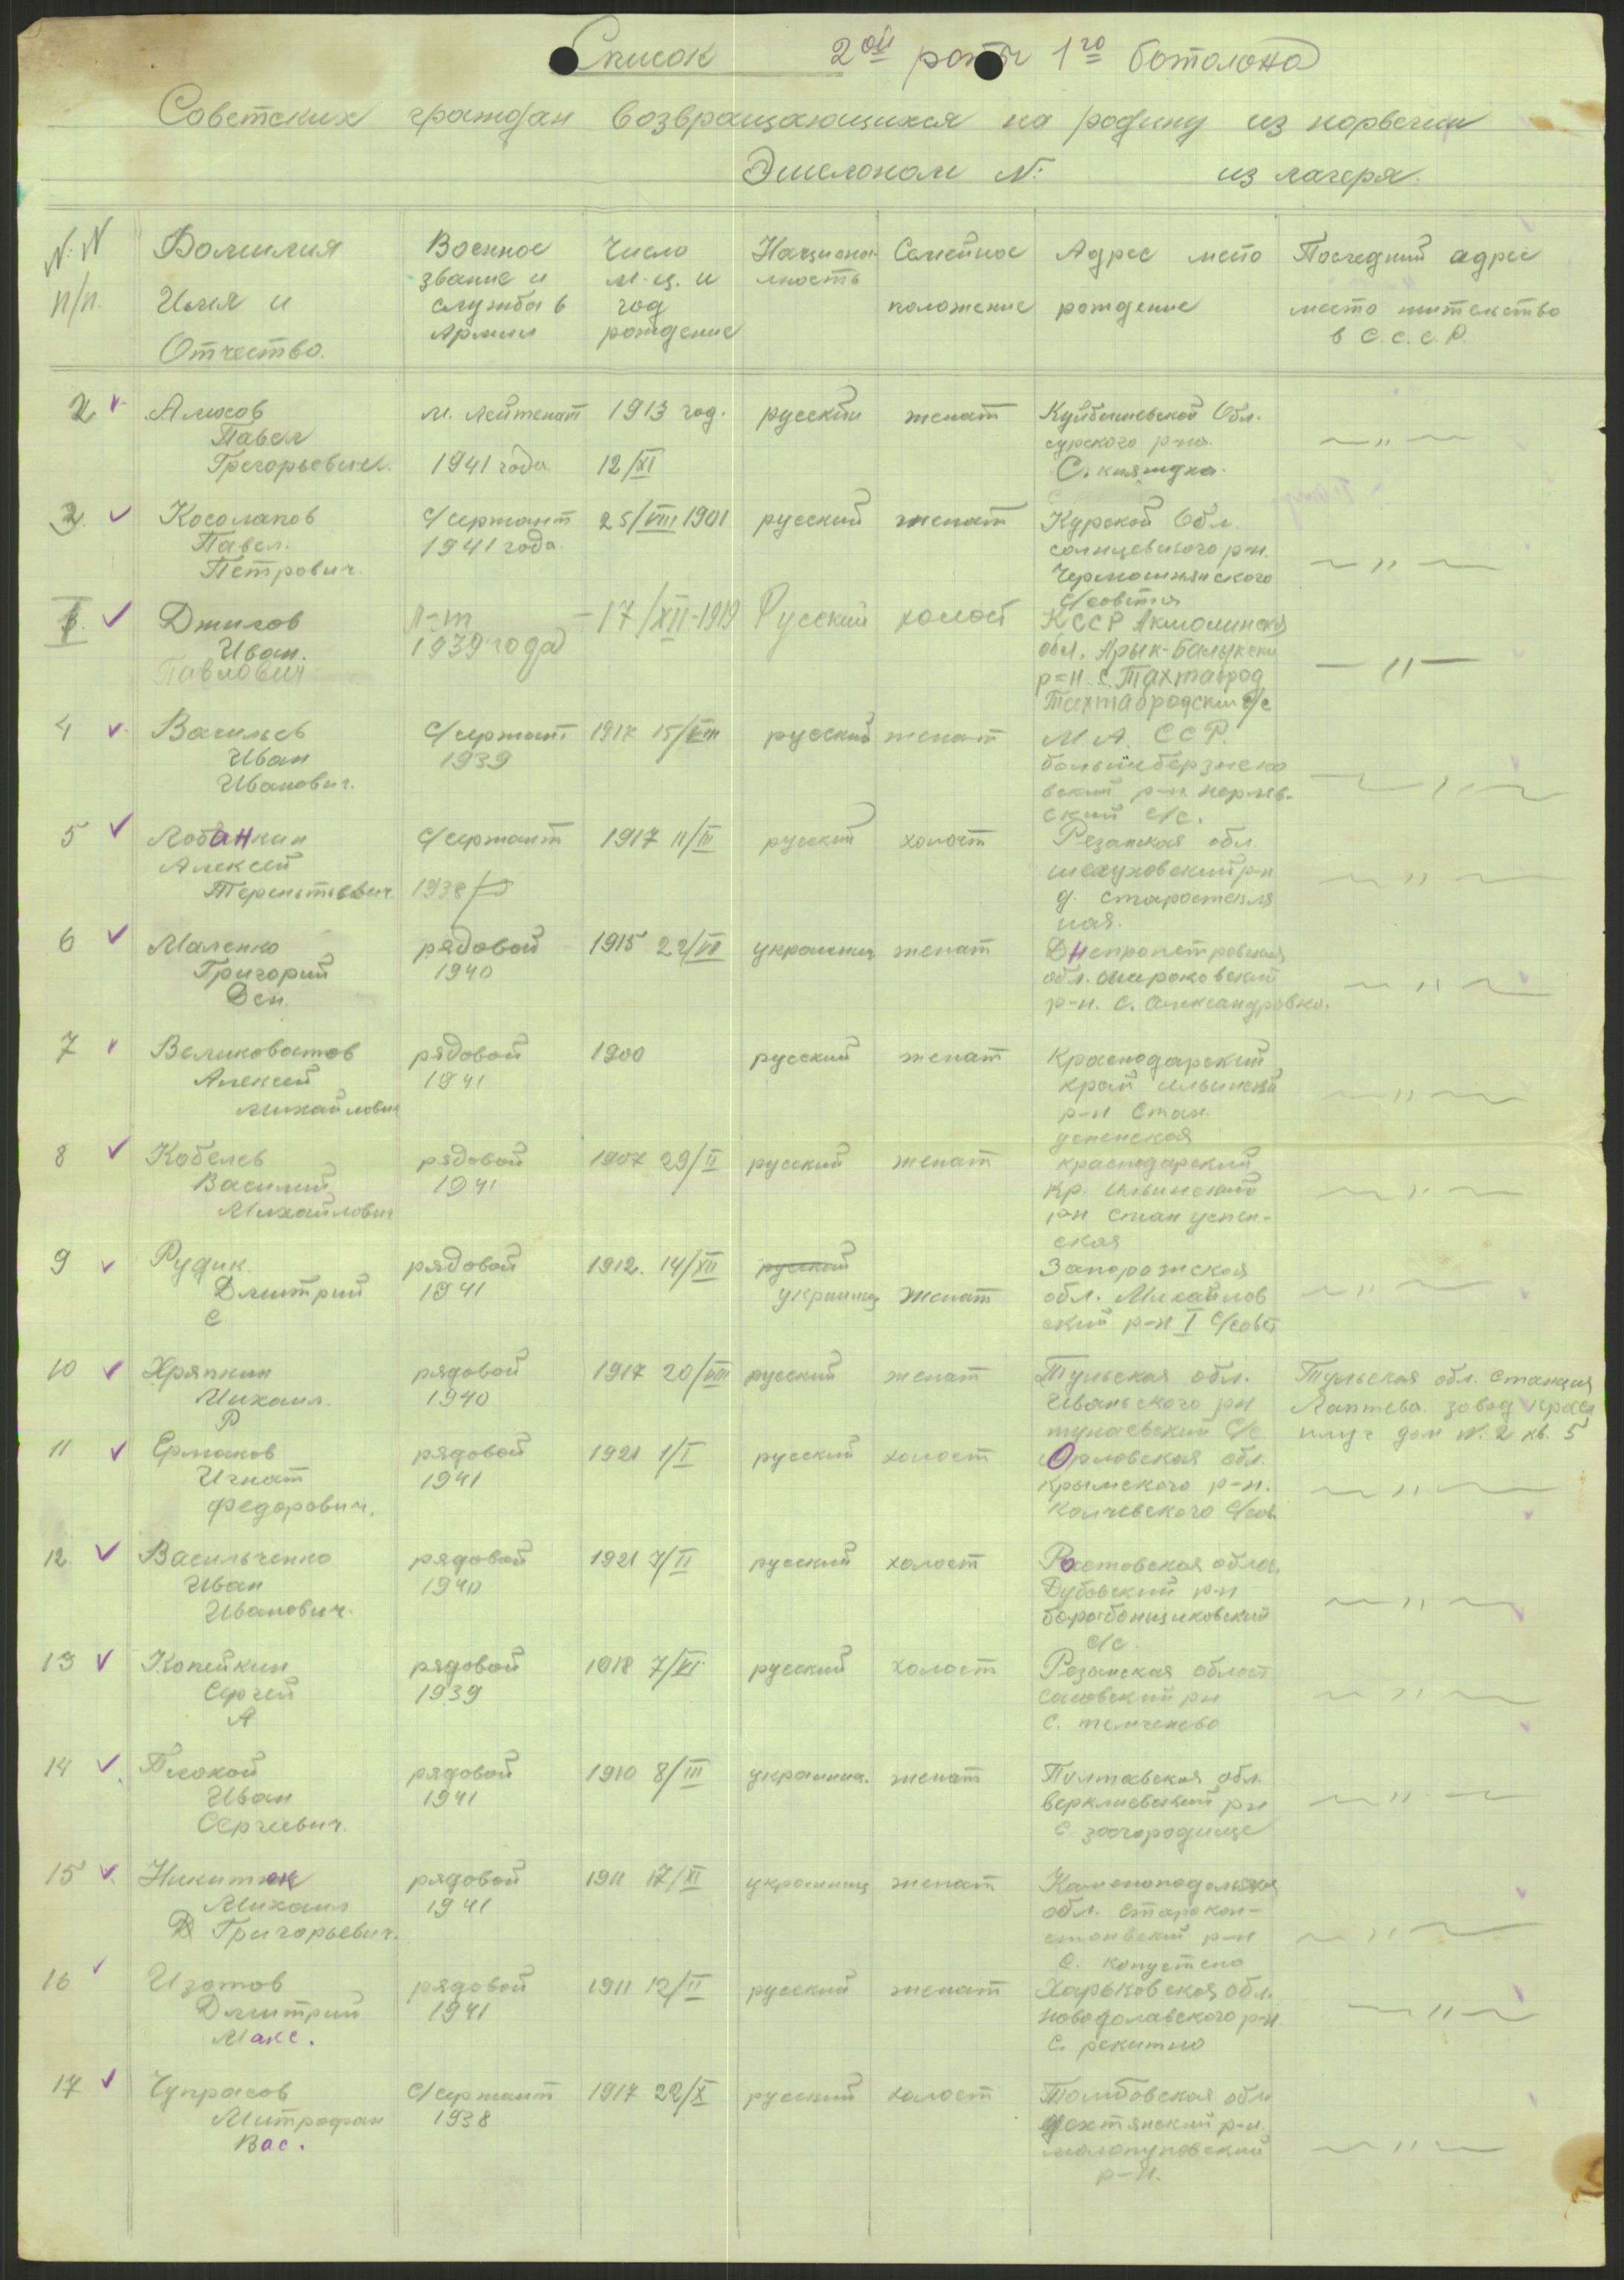 Список 2ой роты 1го батолона
Советских граждан возвращающихся на родину из норвегии
Эшелоном №: из лагеря.
N:N п/п. Фамилия Имя и Отчество.
Военное звание и служба в Армии
Число м-ц. и год рождение
Национальность
Семейное положение
Адрес место рождение
Последний адрес место жительство в С.С.С.Р.
2 Алюхов м. лейтенат 1913 год. русский женат Куйбышевской Обл.
Павел сурского р-на. —〃—
Григорьевич. 1941 года. 12/XI С.
2. Косолапов с/сержант 25/VIII 1901 русский женат Курской Обл.
Павел. 1941 года. солнцевского р-н. —〃—
Петрович.
с/совета
Джигов Л-т – 17/XII-1919 Русский холост КССР Акмолинская
Иван. 1939 года обл. Арык-Балыкски —〃—
Павлович р-н с. Тахтаброд
Тахтабродский с/с
4 Васильев с/сержант. 1917 15/VIII русский женат М.А. ССР.
Иван 1939
Иванович. р-н —〃—
ский с/с.
5 Лобанкин с/сержант 1917 11/III русский холост Резанская обл.
Алексей р-н
Терентьевич 1938 д. —〃—
ная.
6 Маленко рядовой 1915 22/VII украинец женат Днепропетровская
Григорий 1940 обл. широковский —〃—
Дем. р-н. с. Александровка.
7 Великоватов рядовой 1900 русский женат Краснодарский
Алексей 1941 край ильинский —〃—
Михайлович р-н Стан.
8 Кобелев рядовой 1907 29/II русский женат краснодарский
Василий 1941 кр. ильинский —〃—
Михайлович р-н стан успен-
ская
9 Рудик рядовой 1912. 14/XII русский Запорожская
Дмитрий 1941 украинец женат обл. Михайлов —〃—
С ский р-н I с/совет
10 Хряпкин рядовой 1917 20/VIII русский женат Тульская обл. Тульская обл. станция
Михаил. 1940 Иваньского рн Лаптева. завод
Р с/с. плуг дом №. 2 кв. 5
11 Ермаков рядовой 1921 1/I русский холост Орловская обл.
Игнат 1941 крымского р-н. —〃—
Федорович. с/сов.
12 Васильченко рядовой 1921 7/II русский холост Ростовская облас.
Иван 1940 Дубовский р-н —〃—
Иванович.
с/с.
13 Копейкин рядовой 1918 7/VI русский холост Резанская област
Сергей 1939 сасовский рн —〃—
А с. темченево
14 Плохой рядовой 1910 8/III украинец. женат Полтавская обл.
Иван 1941 рн —〃—
Сергеевич. с загородище
15 Никитюк рядовой 1911 17/XI украинец женат Каменоподольская
Михаил 1941 обл. старокон-
Григорьевич. р-н —〃—
16 Изотов рядовой 1911 12/II русский женат Харьковская обл.
Дмитрий 1941 р-н. —〃—
Макс. с. рекитно
17 Чупрасов с/сержант 1917 22/X русский холост Томбовская обл
Митрофан 1938 р-н. —〃—
Вас.
р-н.